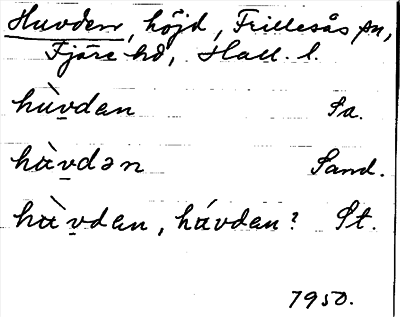 Huvden, höjd, Frillesås sn,
Fjäre hd, Hall. l.
hùv̠dan Sa.
hàv̠dən Sand.
hàv̠dan, hávdan? St.
1950.